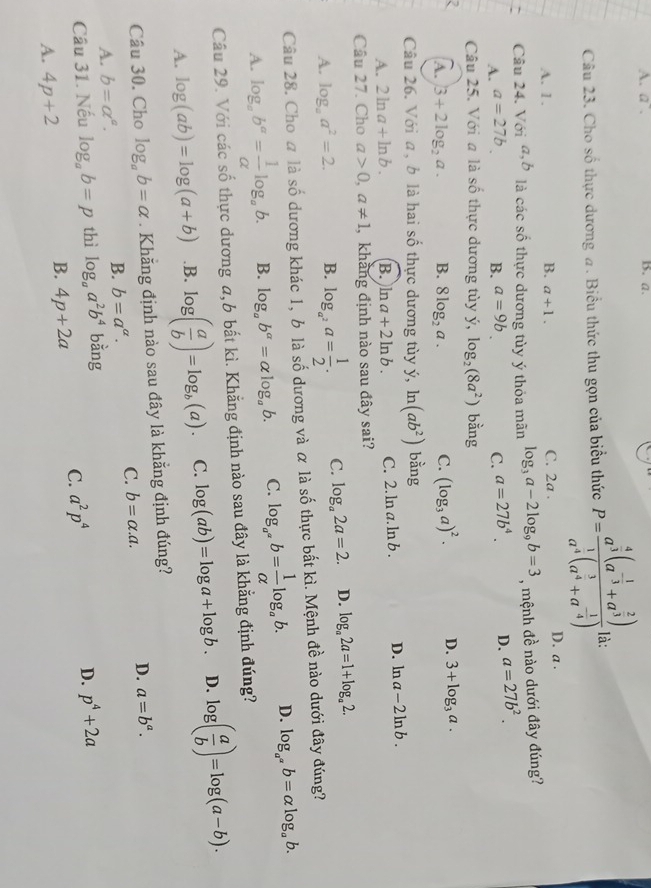 A. a². B. a.
Câu 23. Cho số thực dương a. Biểu thức thu gọn của biểu thức P = \frac{a^{\frac{4}{3}}(a^{-\frac{1}{3}}+a^{\frac{2}{3}})}{a^{\frac{1}{4}}(a^{\frac{3}{4}}+a^{-\frac{1}{4}})} là:
A. 1. B. a+1. C. 2a. D. a.
Câu 24. Với a,b là các số thực dương tùy ý thỏa mãn log₃ a − 2log₉ b = 3, mệnh đề nào dưới đây đúng?
A. a = 27b. B. a = 9b. C. a = 27b⁴. D. a = 27b².
Câu 25. Với a là số thực dương tùy ý, log₂(8a²) bằng
A. 3+2log₂ a. B. 8log₂ a. C. (log₃ a)². D. 3+log₃ a.
Câu 26. Với a, b là hai số thực dương tùy ý, ln(ab²) bằng
A. 2ln a + ln b. B. ln a + 2ln b. C. 2.ln a.ln b. D. ln a − 2ln b.
Câu 27. Cho a > 0, a ≠ 1, khẳng định nào sau đây sai?
A. logₐ a² = 2. B. log_{a²} a = \frac{1}{2}. C. logₐ 2a = 2. D. logₐ 2a = 1 + logₐ 2.
Câu 28. Cho a là số dương khác 1, b là số dương và α là số thực bất kì. Mệnh đề nào dưới đây đúng?
A. logₐ b^α = \frac{1}{α} logₐ b. B. logₐ b^α = α logₐ b. C. log_{a^α} b = \frac{1}{α} logₐ b. D. log_{a^α} b = α logₐ b.
Câu 29. Với các số thực dương a,b bất kì. Khẳng định nào sau đây là khẳng định đúng?
A. log(ab) = log(a+b) .B. log(\frac{a}{b}) = log_b(a). C. log(ab) = log a + log b. D. log(\frac{a}{b}) = log(a−b).
Câu 30. Cho logₐ b = α. Khẳng định nào sau đây là khẳng định đúng?
A. b = α^a. B. b = a^α. C. b = α.a. D. a = b^α.
Câu 31. Nếu logₐ b = p thì logₐ a²b⁴ bằng
A. 4p+2 B. 4p+2a C. a²p⁴ D. p⁴+2a